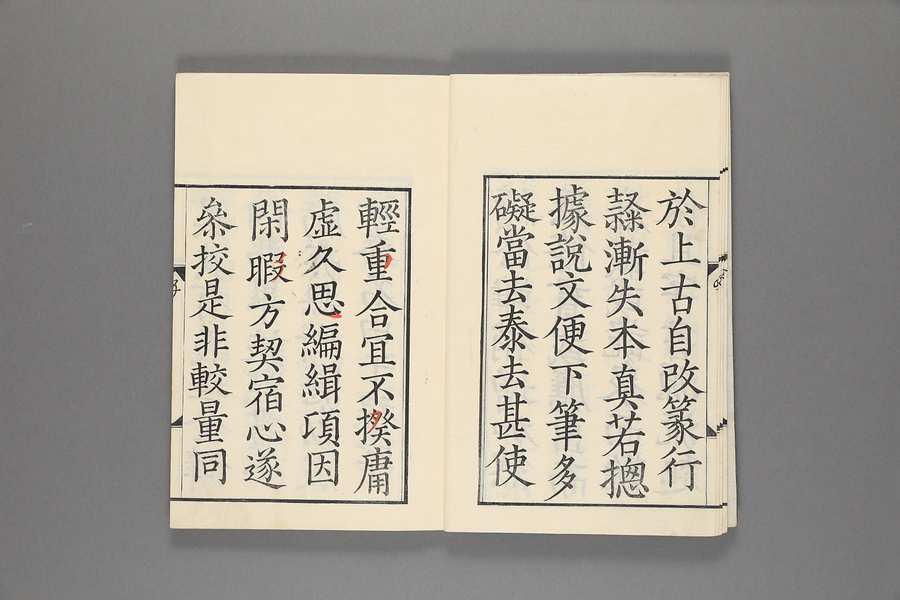 於上古自改篆行
隷漸失本真若揔
據說文便下筆多
礙當去泰去甚使
輕重合宜不揆庸
虛久思編緝頃因
閑暇方契宿心遂
叅挍是非較量同